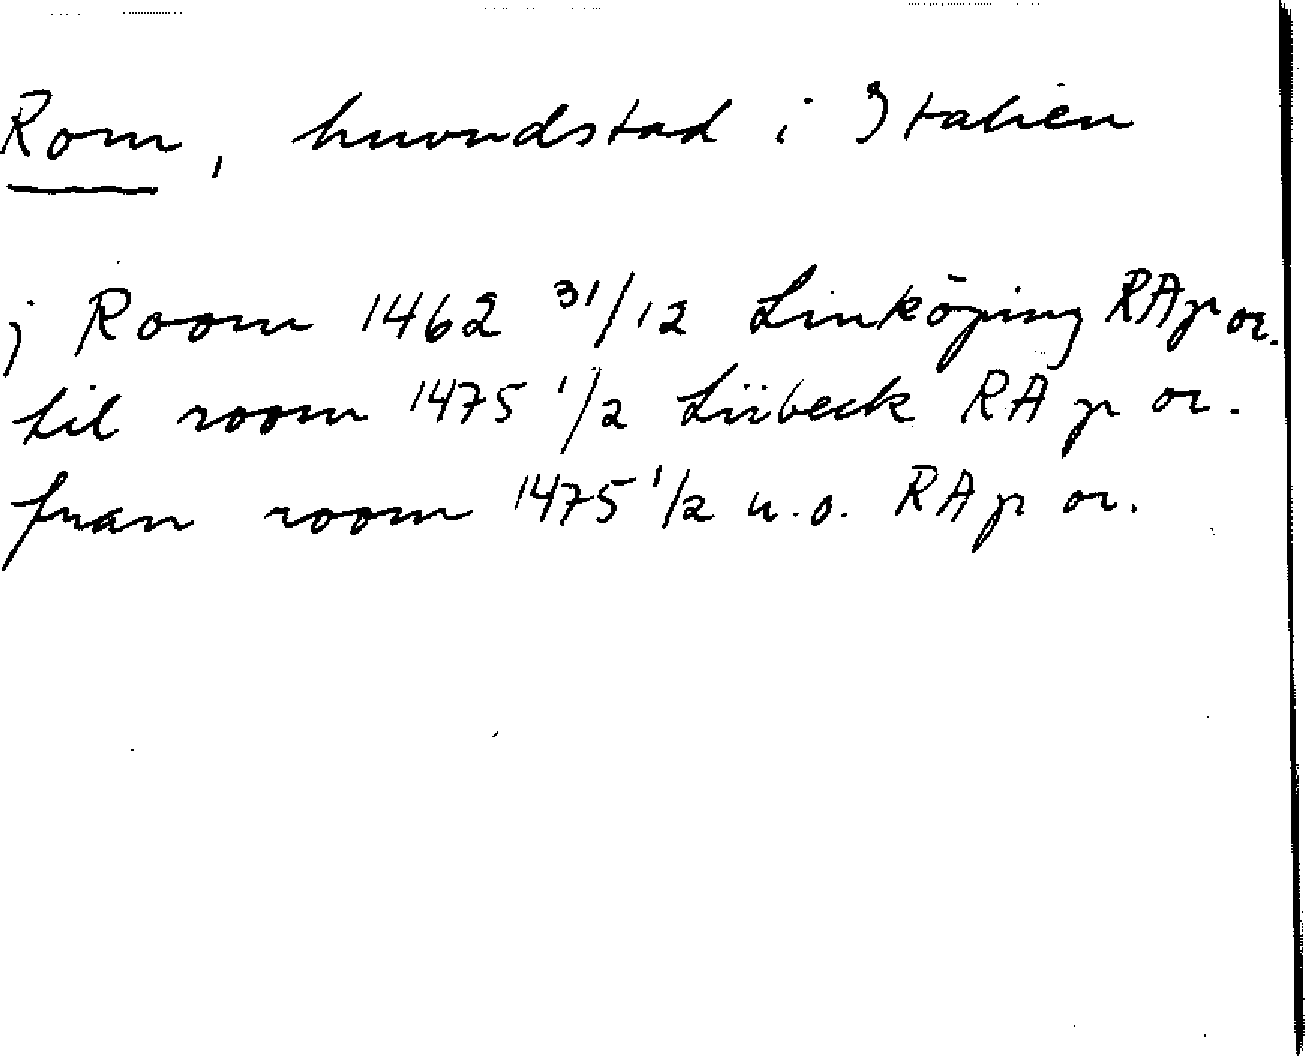 Rom, huvudstad i Italien
j Room 1462 31/12 Linköping RAp or.
til room 1475 1/2 Lübeck RA p or.
fran room 1475 1/2 u.o. RA p or.